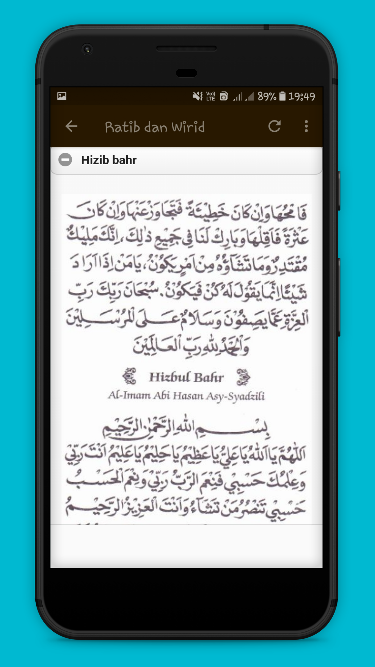 89% 19:49
Ratib dan Wirid
Hizib bahr
فَامْحُهَا وَاِنْ كَانَ خَطِيْئَةً فَتَجَاوَزْ عَنْهَا وَاِنْ كَانَ
عَثْرَةً فَاَقِلْهَا وَبَارِكْ لَنَا فِي جَمِيْعِ ذٰلِكَ، اِنَّكَ مَلِيْكٌ
مُقْتَدِرٌ وَمَا تَشَاؤُهُ مِنْ اَمْرٍ يَكُوْنُ، يَامَنْ اِذَا اَرَادَ
شَيْئًا اِنَّمَا يَقُوْلُ لَهُ كُنْ فَيَكُوْنُ. سُبْحَانَ رَبِّكَ رَبِّ
الْعِزَّةِ عَمَّا يَصِفُوْنَ وَسَلَامٌ عَلَى الْمُرْسَلِيْنَ
وَالْحَمْدُ لِلّٰهِ رَبِّ الْعَالَمِيْنَ
Hizbul Bahr
Al-Imam Abi Hasan Asy-Syadzili
بِسْمِ اللهِ الرَّحْمٰنِ الرَّحِيْمِ
اَللّٰهُمَّ يَا اَللهُ يَا عَلِيُّ يَا عَظِيْمُ يَا حَلِيْمُ يَا عَلِيْمُ اَنْتَ رَبِّيْ
وَعِلْمُكَ حَسْبِيْ فَنِعْمَ الرَّبُّ رَبِّيْ وَنِعْمَ الْحَسْبُ
حَسْبِيْ تَنْصُرُ مَنْ تَشَاءُ وَاَنْتَ الْعَزِيْزُ الرَّحِيْمُ